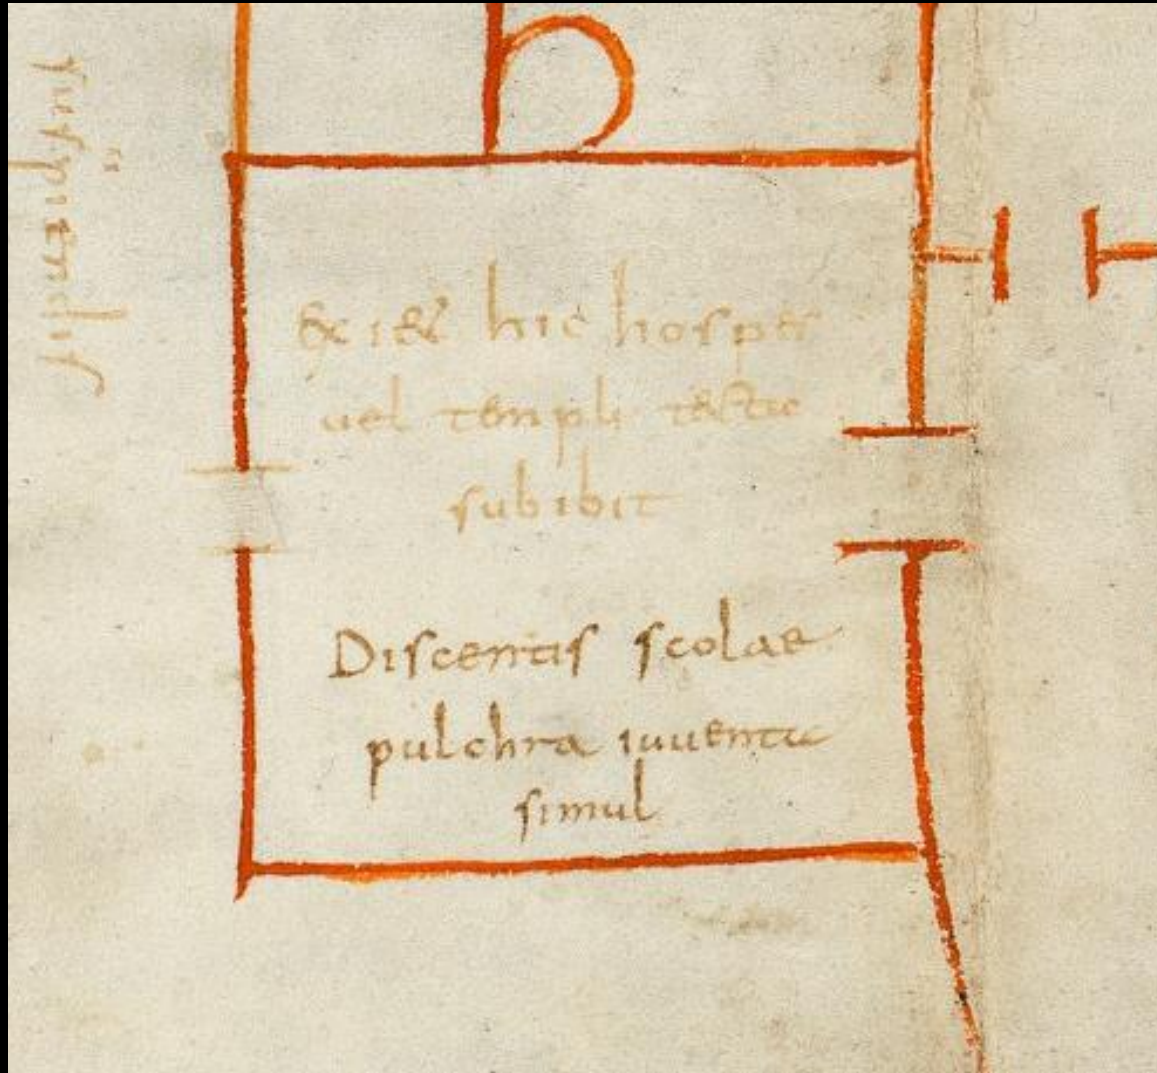 Exi& hic hospes
uel templi tecta
subibit
Discentis scolae
pulchra iuuenta
simul